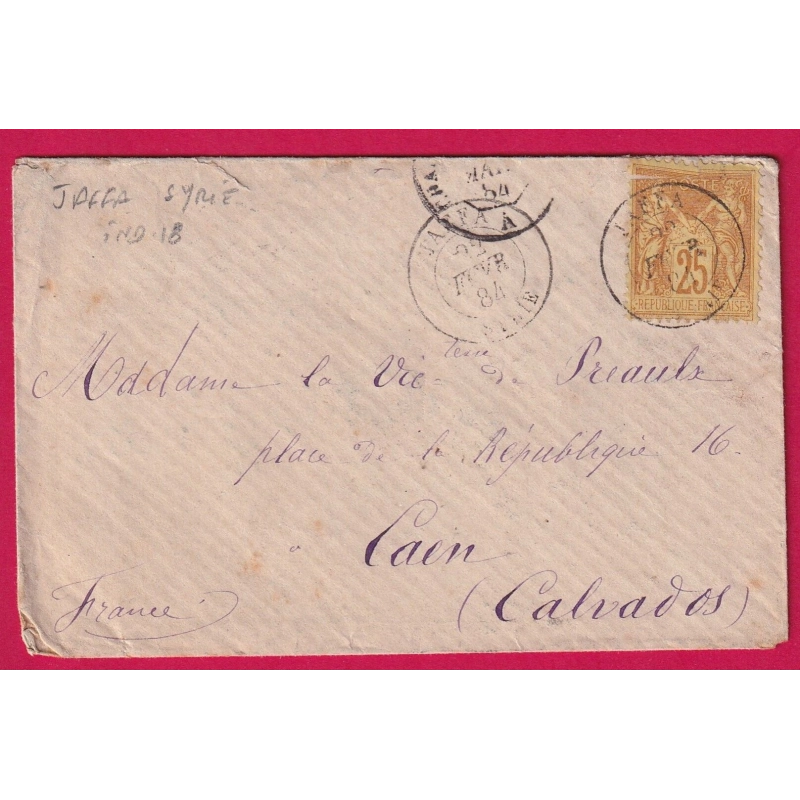 JAFFA SYRIE
IND-18
MAR
84
JAFFA
FEVR
84
SYRIE
JAFFA
25
REPUBLIQUE FRANCAISE
Madame la Victesse de Preaulx
place de la République 16.
à Caen
(Calvados)
France